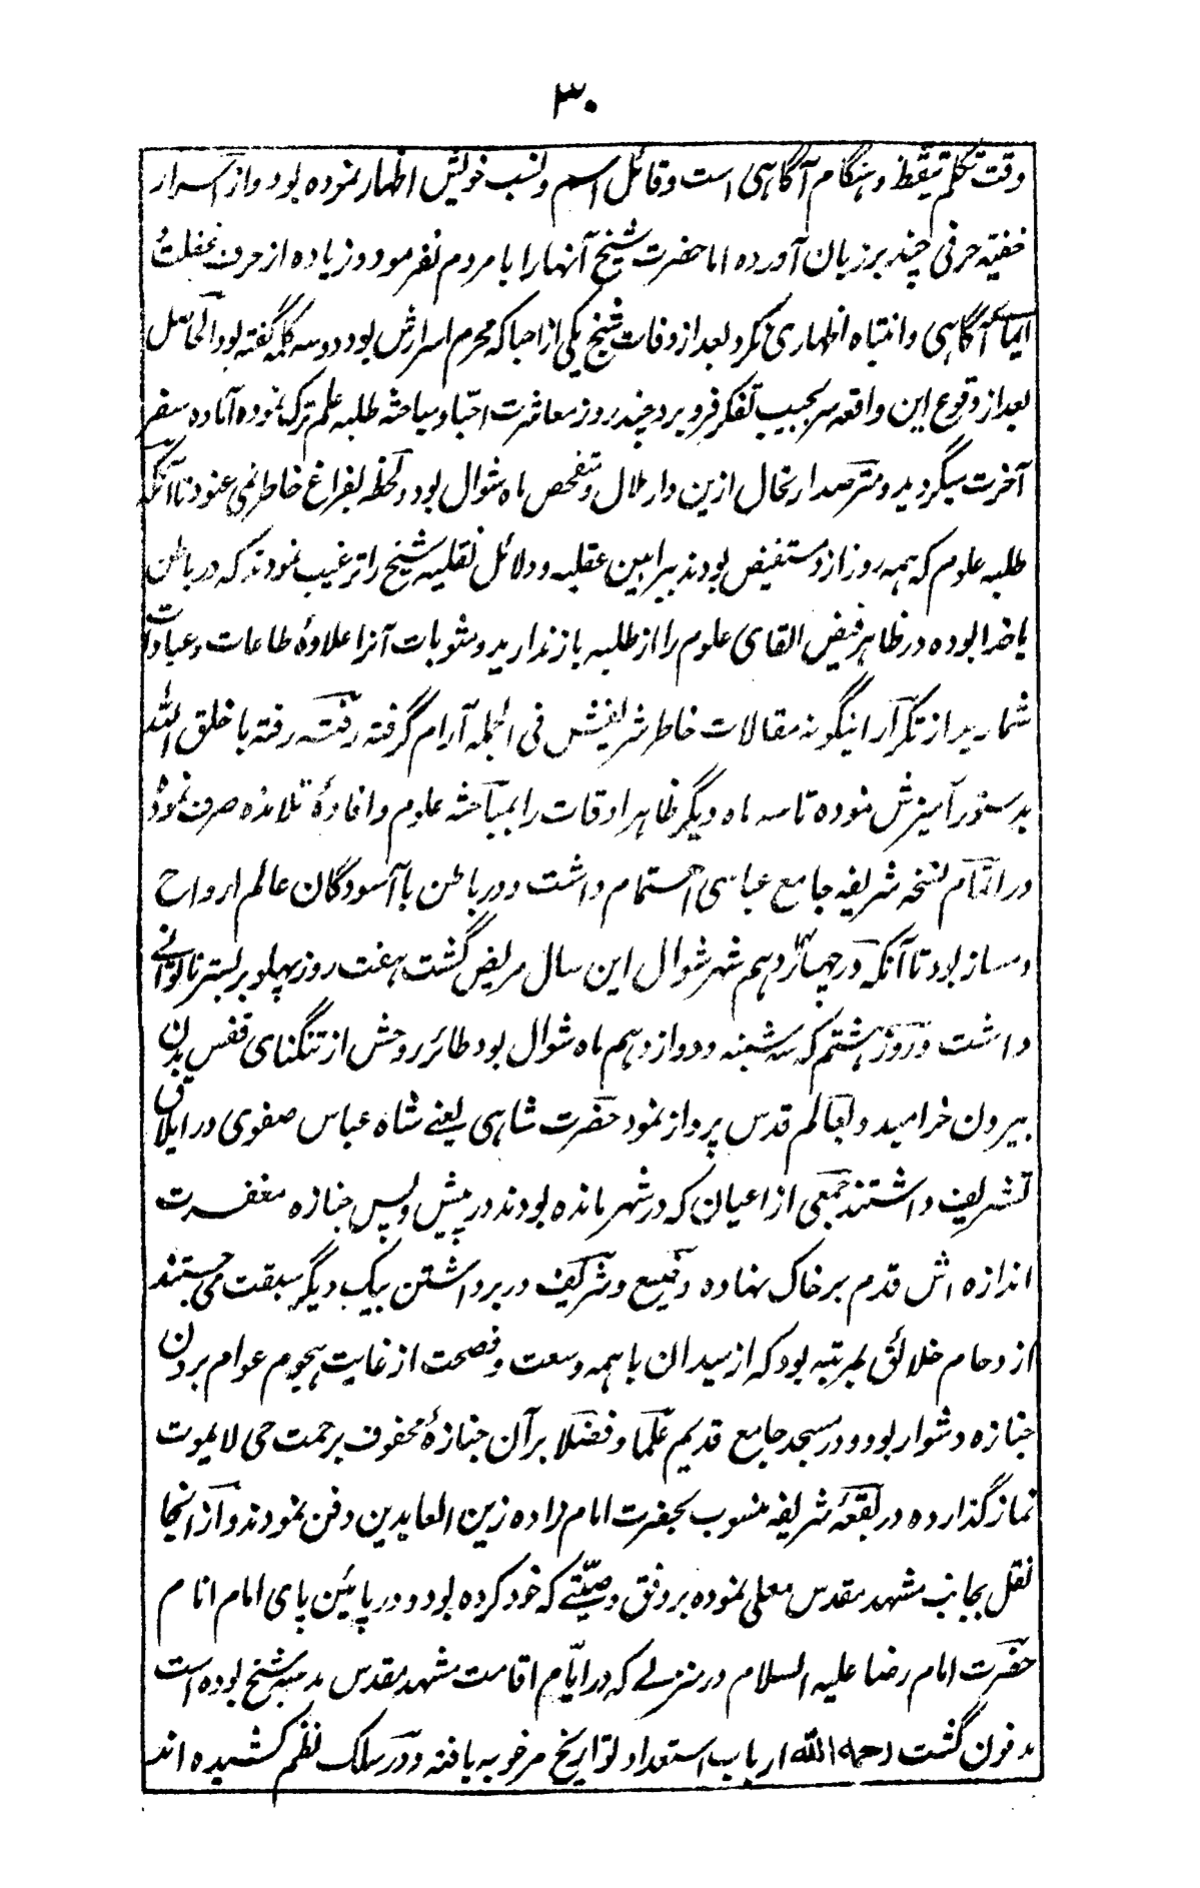 ۳۰
وقت تکلم تیقظ و هنگام آگاهی است و قائل اسم و نسب خویش اظهار نموده بود و از اسرار
خفیه حرفی چند بر زبان آورده اما حضرت شیخ آنها را با مردم نفرمود و زیاده از حرف غفلت
ایما آگاهی و انتباه اظهاری نکرد بعد از وفات شیخ یکی از احبا که محرم اسرارش بود دو سه کلمه گفته بود الحاصل
بعد از وقوع این واقعه سر بجیب تفکر فرو برد چند روز معاشرت احبّا و مباحثه طلبه علم ترک نموده آماده سفر
آخرت میگردید و مترصد ارتحال ازین دار ملال و متفحص ماه شوال بود و لحظه بفراغ خاطر نمی‌غنود تا آنکه
طلبه علوم که همه روز ازو مستفیض بودند ببراهین عقلیه و دلائل نقلیه شیخ را ترغیب نمودند که در باطن
با خدا بوده در ظاهر فیض القای علوم را از طلبه باز ندارید و مثوبات آنرا علاوهٔ طاعات و عبادات
شمارید از تکرار اینگونه مقالات خاطر شریفش فی الجمله آرام گرفته رفته رفته با خلق الله
بدستور آمیزش نموده تا سه ماه دیگر ظاهر اوقات را بمباحثه علوم و افادهٔ تلامذه صرف نموده
در اتمام نسخه شریفه جامع عباسی اهتمام داشت و در باطن با آسودگان عالم ارواح
دمساز بود تا آنکه در چهاردهم شهر شوال این سال مریض گشت هفت روز پهلو بر بستر ناتوانی
داشت و روز هشتم که سه شنبه و دوازدهم ماه شوال بود طائر روحش از تنگنای قفس بدن
بیرون خرامید و بعالم قدس پرواز نمود حضرت شاهی یعنی شاه عباس صفوی در ایلاق
تشریف داشتند جمعی از اعیان که در شهر مانده بودند در پیش و پس جنازه مغفرت
اندازه اش قدم بر خاک نهاده وضیع و شریف در برداشتن بیک دیگر سبقت می جستند
ازدحام خلائق بمرتبه بود که از میدان با همه وسعت و فصحت از غایت هجوم عوام بردن
جنازه دشوار بود و در مسجد جامع قدیم علما و فضلا بر آن جنازهٔ محفوف برحمت حی لا یموت
نماز گذارده در بقعهٔ شریفه منسوب بحضرت امام زاده زین العابدین دفن نمودند و از انجا
نقل بجانب مشهد مقدس معلی نموده بر وفق وصیّتے که خود کرده بود و در پائین پای امام انام
حضرت امام رضا علیه السلام در منزلے که در ایّام اقامت مشهد مقدس مدرسه شیخ بوده است
مدفون گشت رحمه الله ارباب استعداد تواریخ مرغوبه یافته و در سلک نظم کشیده اند